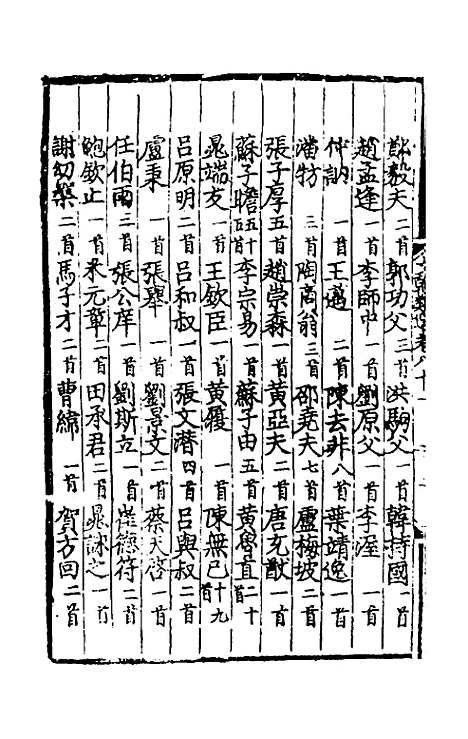 鄭毅夫 二首 郭功父 三首 洪駒父 一首 韓持國 一首
趙孟逢 一首 李師中 一首 劉原父 一首 李涯 一首
仲訥 一首 王邁 二首 陳去非 八首 葉靖逸 一首
潘牥 三首 陶商翁 三首 邵堯夫 七首 盧梅坡 二首
張子厚 五首 趙崇森 一首 黃亞夫 二首 唐充猷 一首
蘇子瞻 五十五首 李宗易 一首 蘇子由 五首 黃魯直 二十首
晁端友 一首 王欽臣 一首 黃履 一首 陳無已 十九首
呂原明 二首 呂和叔 一首 張文潛 四首 呂與叔 二首
盧秉 一首 張舉 一首 劉景文 二首 蔡天啓 一首
任伯雨 三首 張公庠 一首 劉斯立 一首 崔德符 二首
鮑欽止 一首 米元章 二首 田承君 二首 晁詠之 一首
謝幼槃 二首 馬子才 二首 曹緯 一首 賀方回 二首